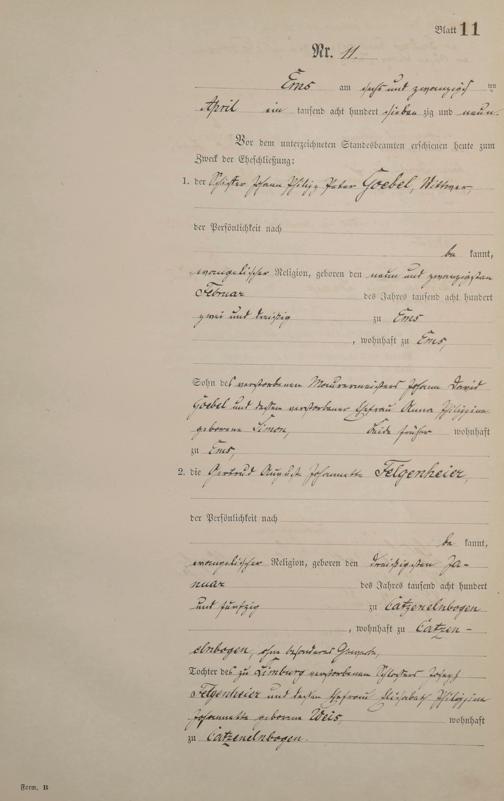 Blatt 11
Nr. 11.
Ems am sechs und zwanzigsten
April ein tausend acht hundert sieben zig und neun.
Vor dem unterzeichneten Standesbeamten erschienen heute zum
Zweck der Eheschließung:
1. der Schlosser Johann Philipp Peter Goebel, Wittwer,
der Persönlichkeit nach
be kannt,
evangelischer Religion, geboren den neun und zwanzigsten
Februar des Jahres tausend acht hundert
zwei und dreißig zu Ems
, wohnhaft zu Ems,
Sohn des verstorbenen Maurermeisters Johann David
Goebel und dessen verstorbener Ehefrau Anna Philippine
geborene Simon, beide früher wohnhaft
zu Ems,
2. die Gertrud August Johannette Felgenheier,
der Persönlichkeit nach
be kannt,
evangelischer Religion, geboren den dreißigsten Ja-
nuar des Jahres tausend acht hundert
und fünfzig zu Catzenelnbogen
, wohnhaft zu Catzen-
elnbogen, ohne besonderes Gewerbe,
Tochter des zu Limburg verstorbenen Schlossers Joseph
Felgenheier und dessen Ehefrau Elisabeth Philippine
Johannette geborene Weis, wohnhaft
zu Catzenelnbogen.
Form. B